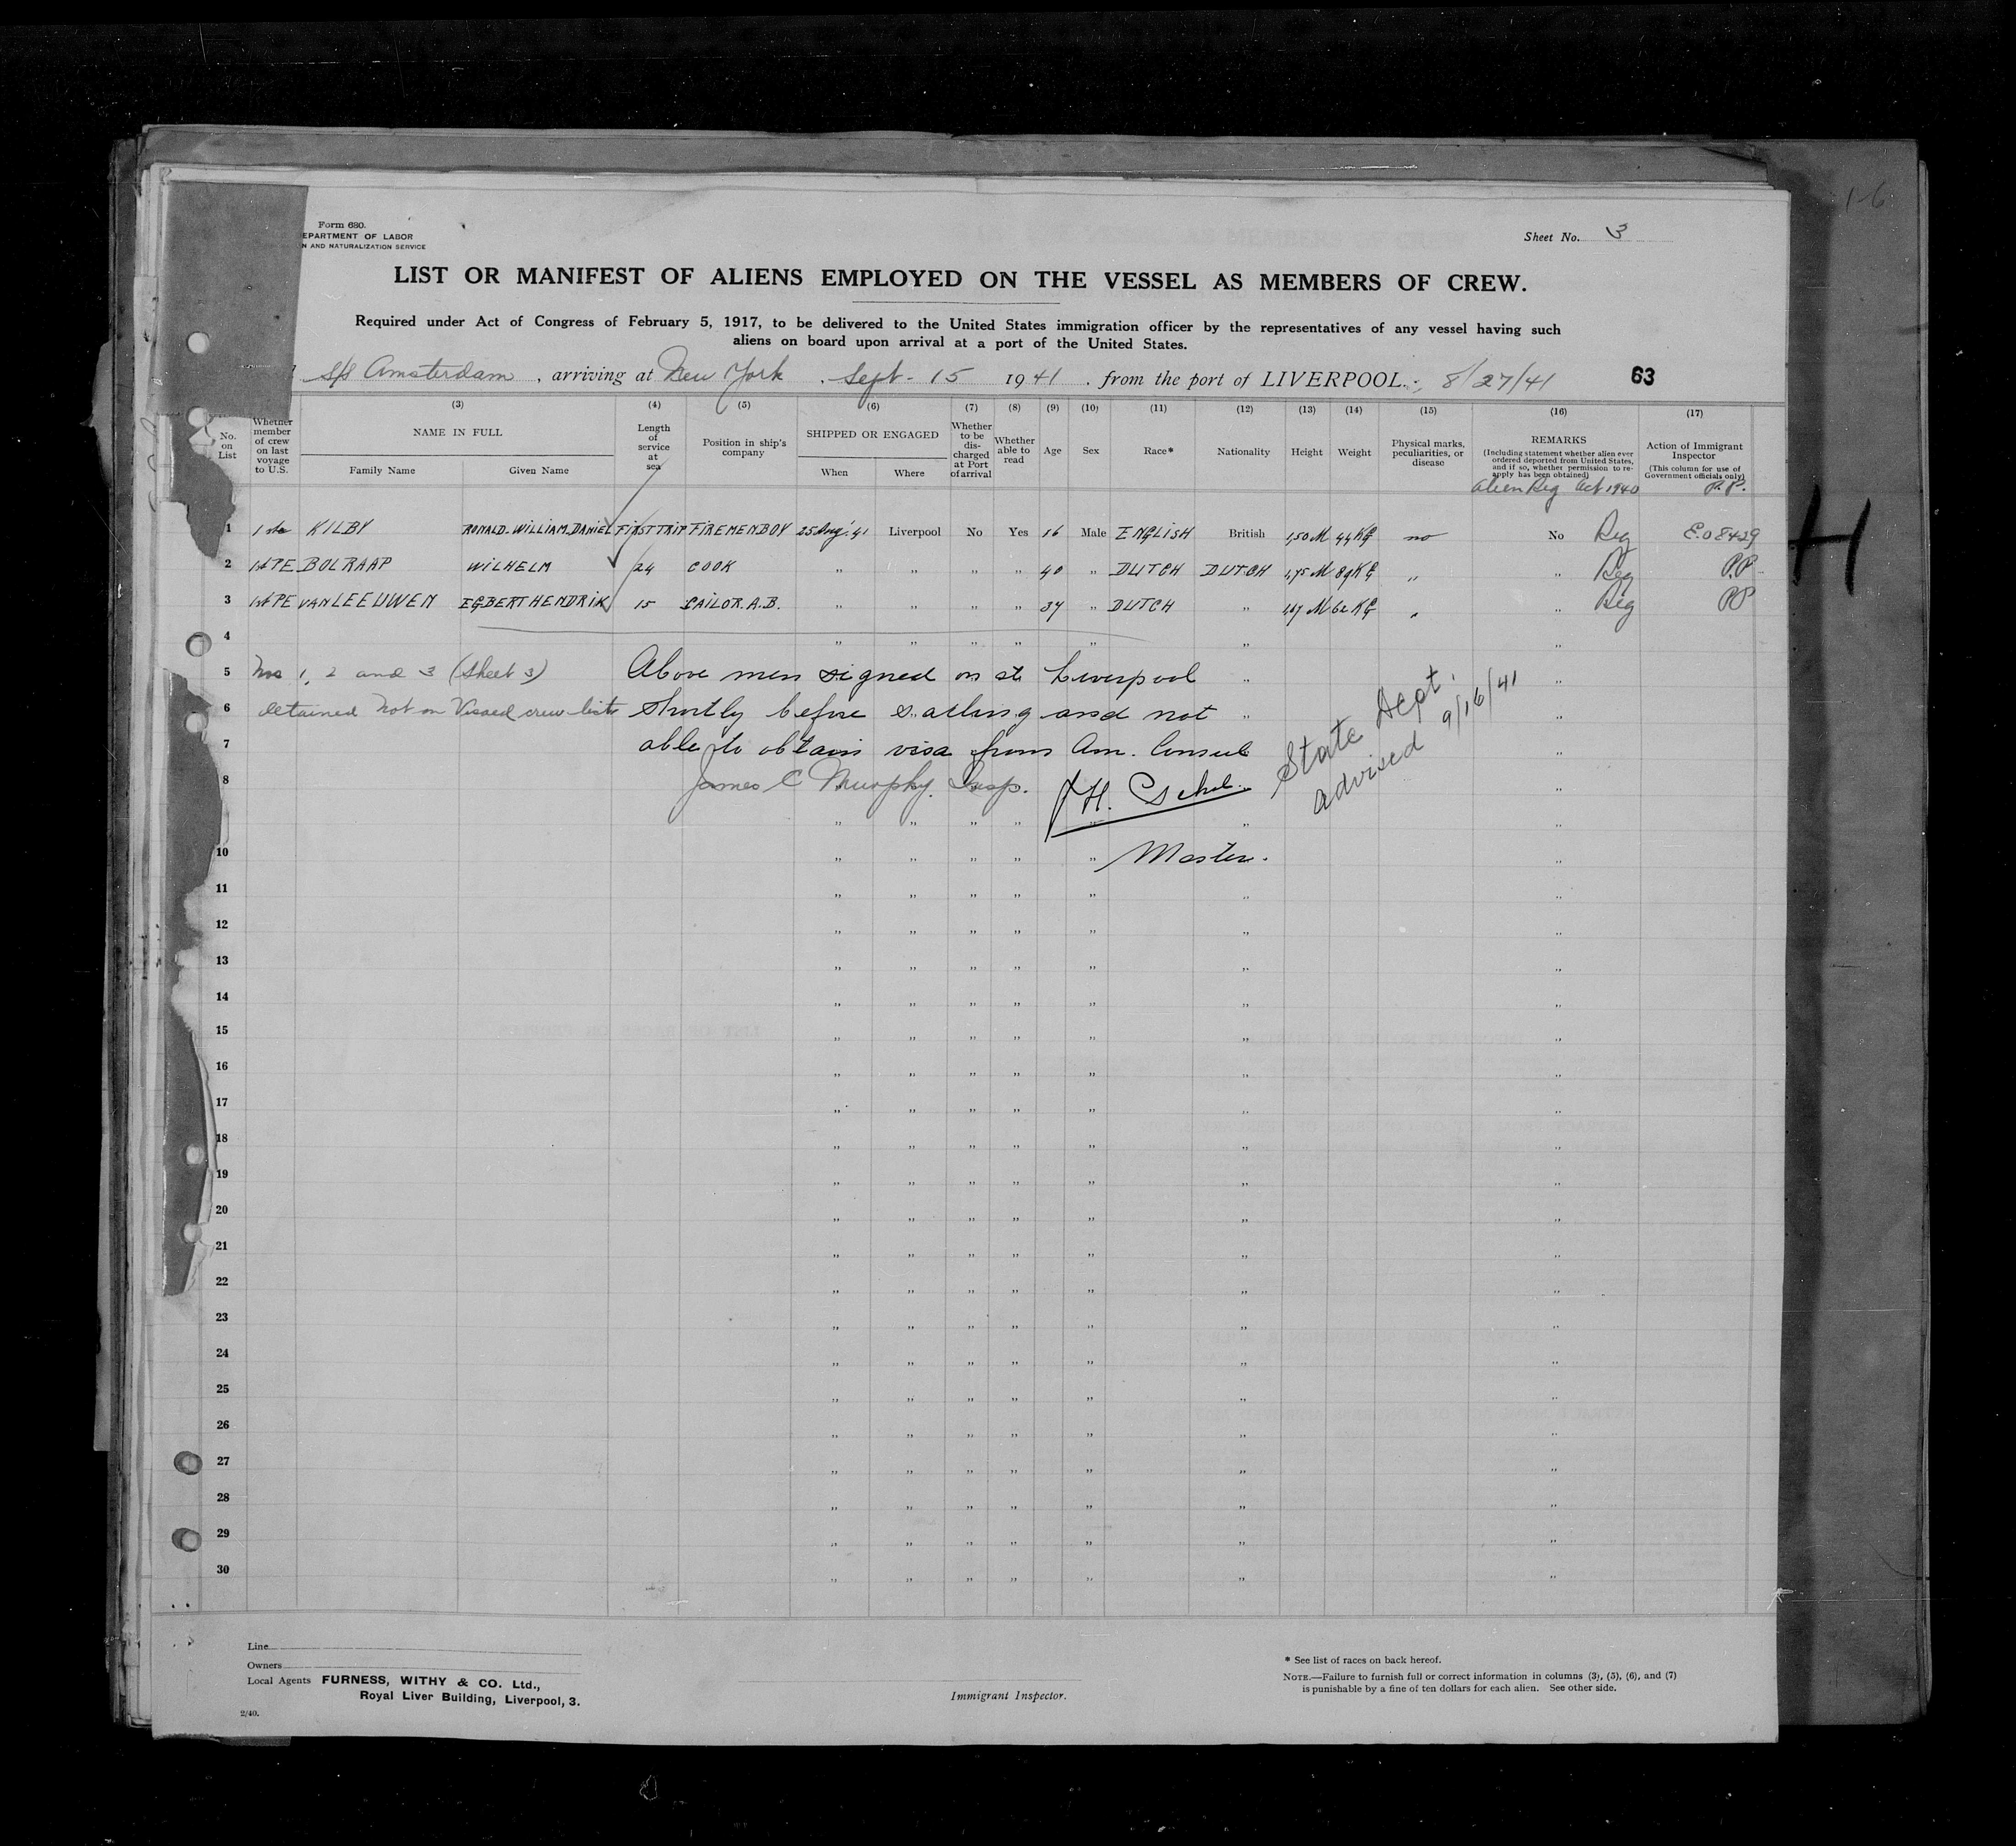 1-6
H
Form 680.
EPARTMENT OF LABOR
N AND NATURALIZATION SERVICE
Sheet No. 3
LIST OR MANIFEST OF ALIENS EMPLOYED ON THE VESSEL AS MEMBERS OF CREW.
Required under Act of Congress of February 5, 1917, to be delivered to the United States immigration officer by the representatives of any vessel having such
aliens on board upon arrival at a port of the United States.
S/S Amsterdam, arriving at New York, Sept. 15 1941, from the port of LIVERPOOL.; 8/27/41 63
(3) (4) (5) (6) (7) (8) (9) (10) (11) (12) (13) (14) (15) (16) (17)
No. on List
Whether member of crew on last voyage to U.S.
NAME IN FULL
Family Name Given Name
Length of service at sea
Position in ship's company
SHIPPED OR ENGAGED
When Where
Whether to be discharged at Port of arrival
Whether able to read
Age
Sex
Race*
Nationality
Height
Weight
Physical marks, peculiarities, or disease
REMARKS
(Including statement whether alien ever ordered deported from United States, and if so, whether permission to re-apply has been obtained)
Alien Reg Act 1940
Action of Immigrant Inspector
(This column for use of Government officials only)
P.P.
1 KILBY RONALD. WILLIAM. DANIEL FIRST TRIP FIREMENBOY 25 Aug '41 Liverpool No Yes 16 Male ENGLISH British 1,50 M 44 KG no No Reg E.08429
2 BOLRAAP WILHELM 24 COOK " " " " 40 " DUTCH DUTCH 1,75 M 89 KG " " Reg P.P.
3 van LEEUWEN EGBERT HENDRIK 15 SAILOR. A.B. " " " " 37 " DUTCH " 1,67 M 62 KG " " Reg PP
4 " " " " " " "
5 Nos 1, 2 and 3 (Sheet 3) Above men signed on at Liverpool " "
6 detained Not on Visaed crew list shortly before sailing and not " "
7 able to obtain visa from Am. Consul "
State Dept.
advised 9/16/41
8 James C Murphy Insp. J H. "
" " " " " " "
10 " " " " " Master. "
11 " " " " " " "
12 " " " " " " "
13 " " " " " " "
14 " " " " " " "
15 " " " " " " "
16 " " " " " " "
17 " " " " " " "
18 " " " " " " "
19 " " " " " " "
20 " " " " " " "
21 " " " " " " "
22 " " " " " " "
23 " " " " " " "
24 " " " " " " "
25 " " " " " " "
26 " " " " " " "
27 " " " " " " "
28 " " " " " " "
29 " " " " " " "
30 " " " " " " "
Line
Owners
Local Agents FURNESS, WITHY & CO. Ltd.,
Royal Liver Building, Liverpool, 3.
2/40.
Immigrant Inspector.
* See list of races on back hereof.
NOTE.—Failure to furnish full or correct information in columns (3), (5), (6), and (7)
is punishable by a fine of ten dollars for each alien. See other side.